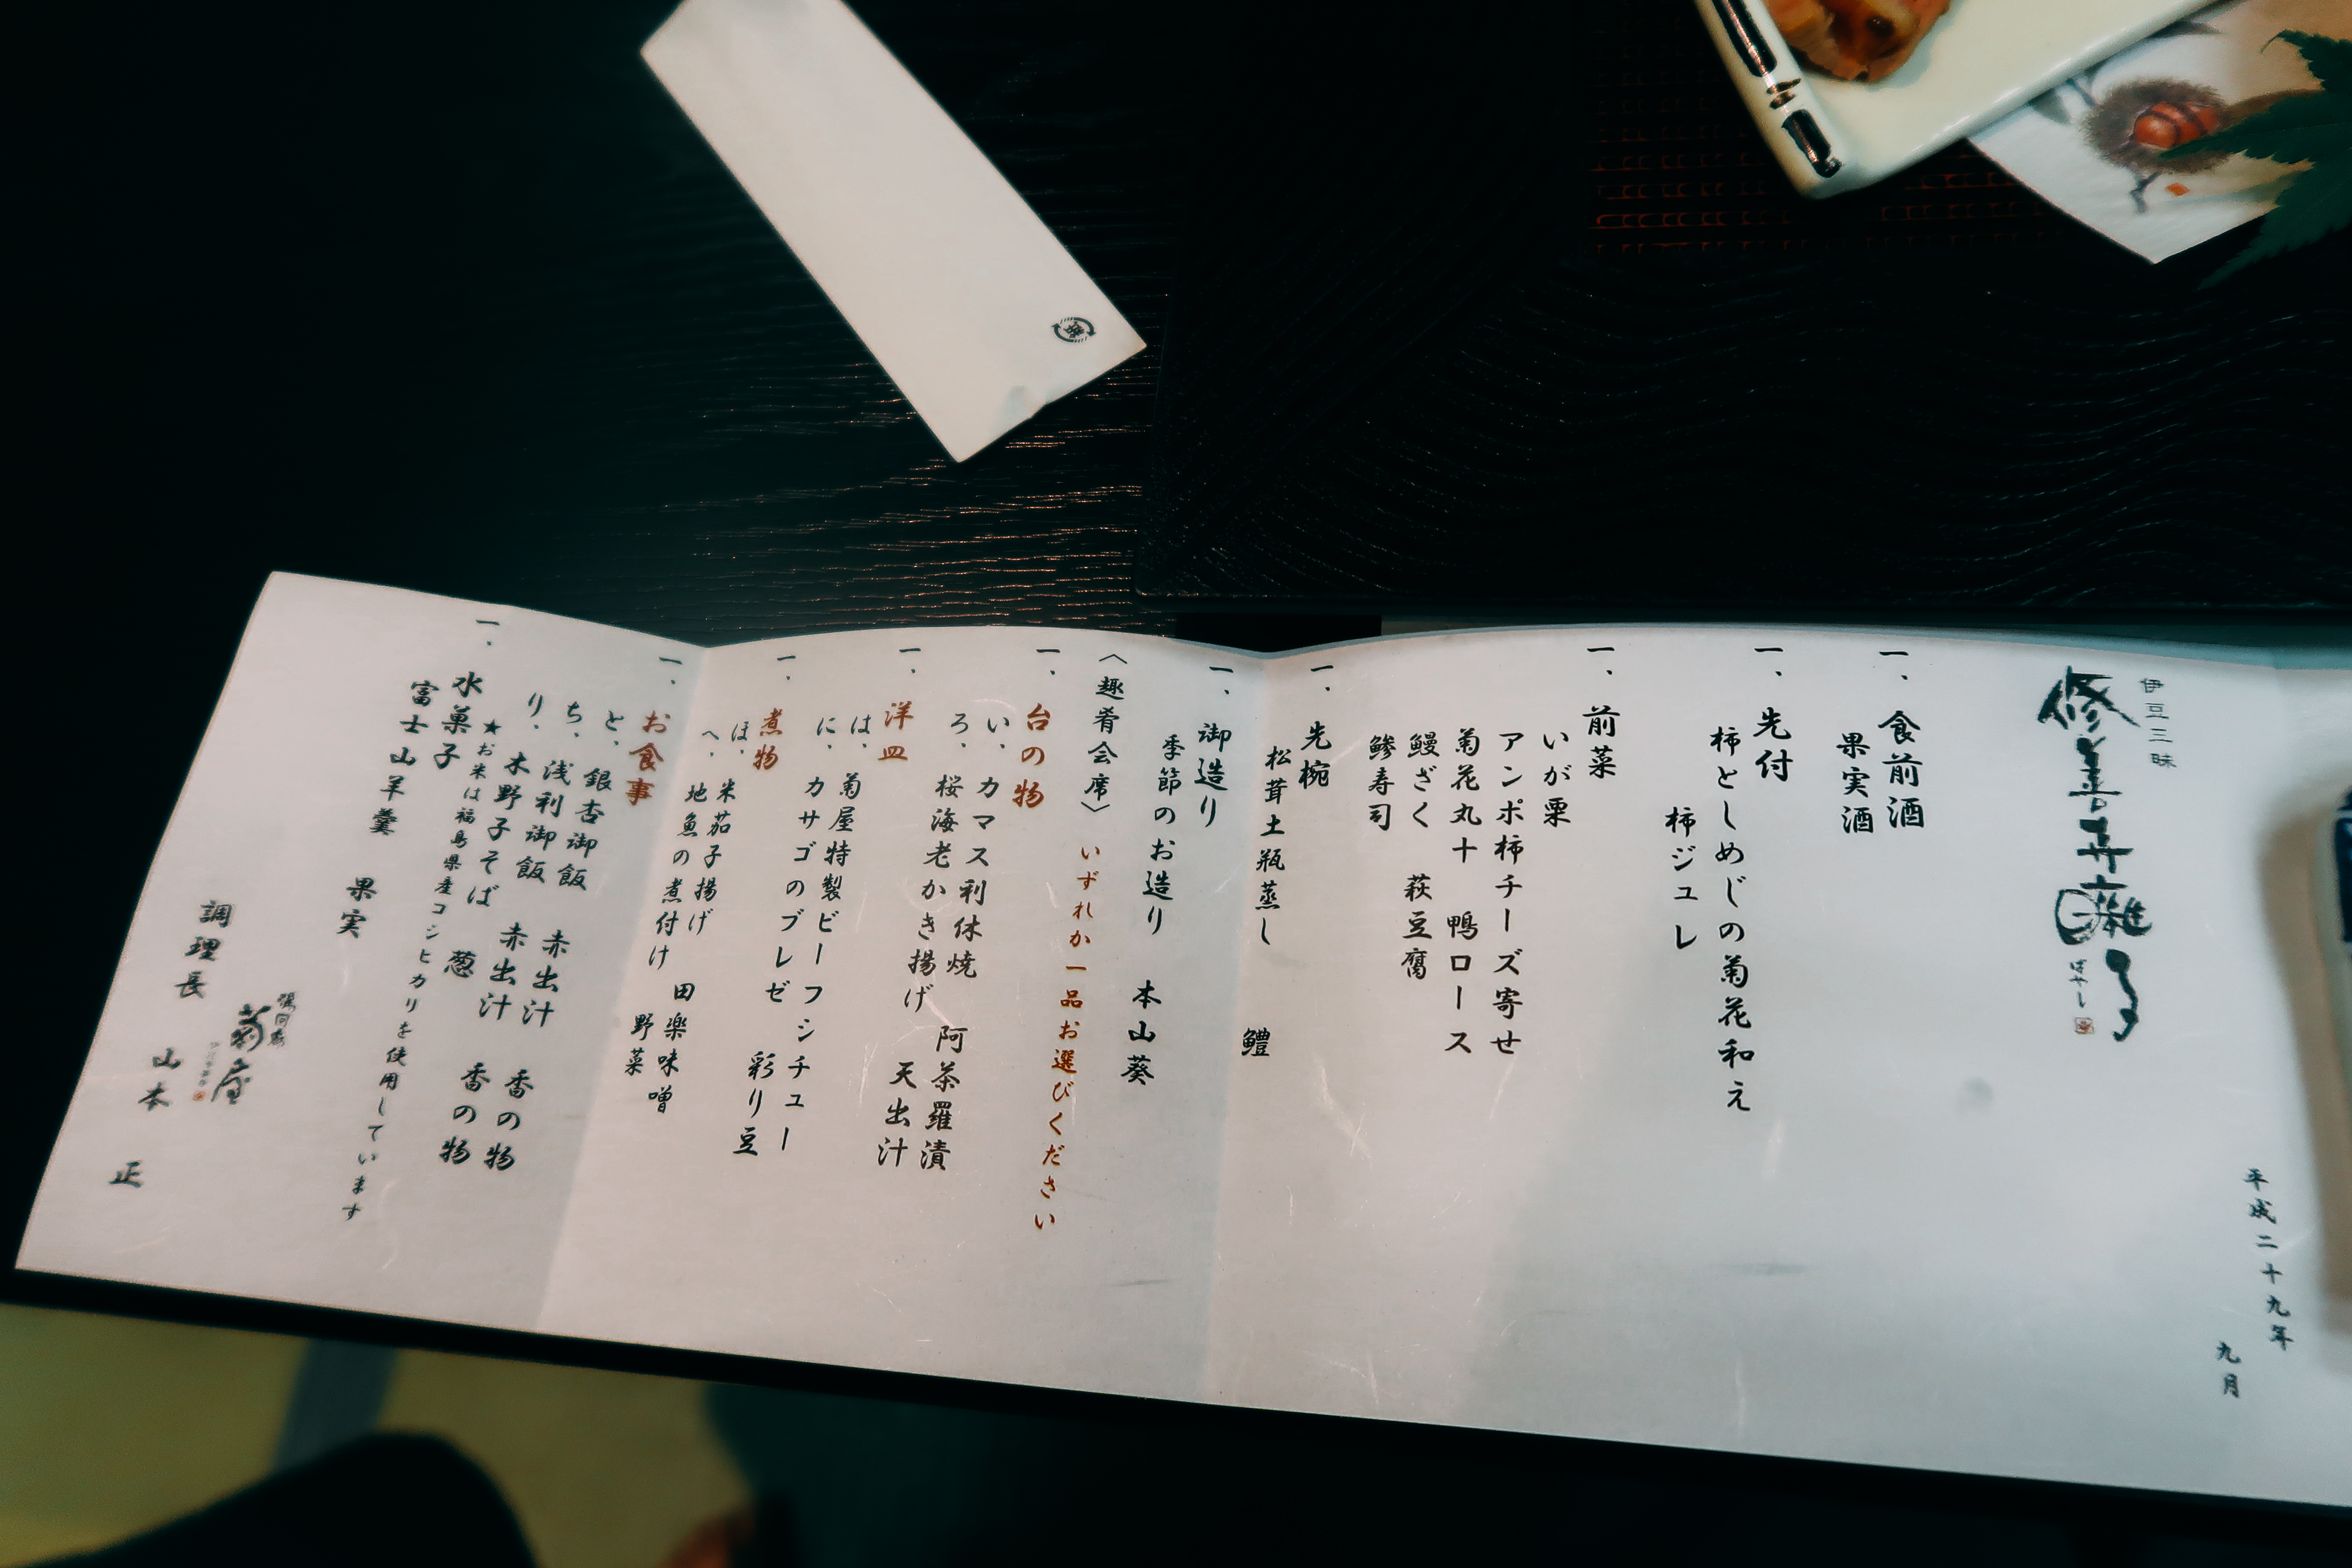 平成二十九年
九月
伊豆三昧
修善寺囃子
ばやし
一、食前酒
果実酒
一、先付
柿としめじの菊花和え
柿ジュレ
一、前菜
いが栗
アンポ柿チーズ寄せ
菊花丸十　鴨ロース
鰻ざく　萩豆腐
鯵寿司
一、先椀
松茸土瓶蒸し　鱧
一、御造り
季節のお造り　本山葵
〈趣肴会席〉いずれか一品お選びください
一、台の物
い、カマス利休焼　阿茶羅漬
ろ、桜海老かき揚げ　天出汁
一、洋皿
は、菊屋特製ビーフシチュー
に、カサゴのブレゼ　彩り豆
一、煮物
ほ、米茄子揚げ　田楽味噌
へ、地魚の煮付け　野菜
一、お食事
と、銀杏御飯　赤出汁　香の物
ち、浅利御飯　赤出汁　香の物
り、木野子そば　葱
★お米は福島県産コシヒカリを使用しています
一、水菓子
富士山羊羹　果実
湯回廊
菊屋
調理長　山本　正